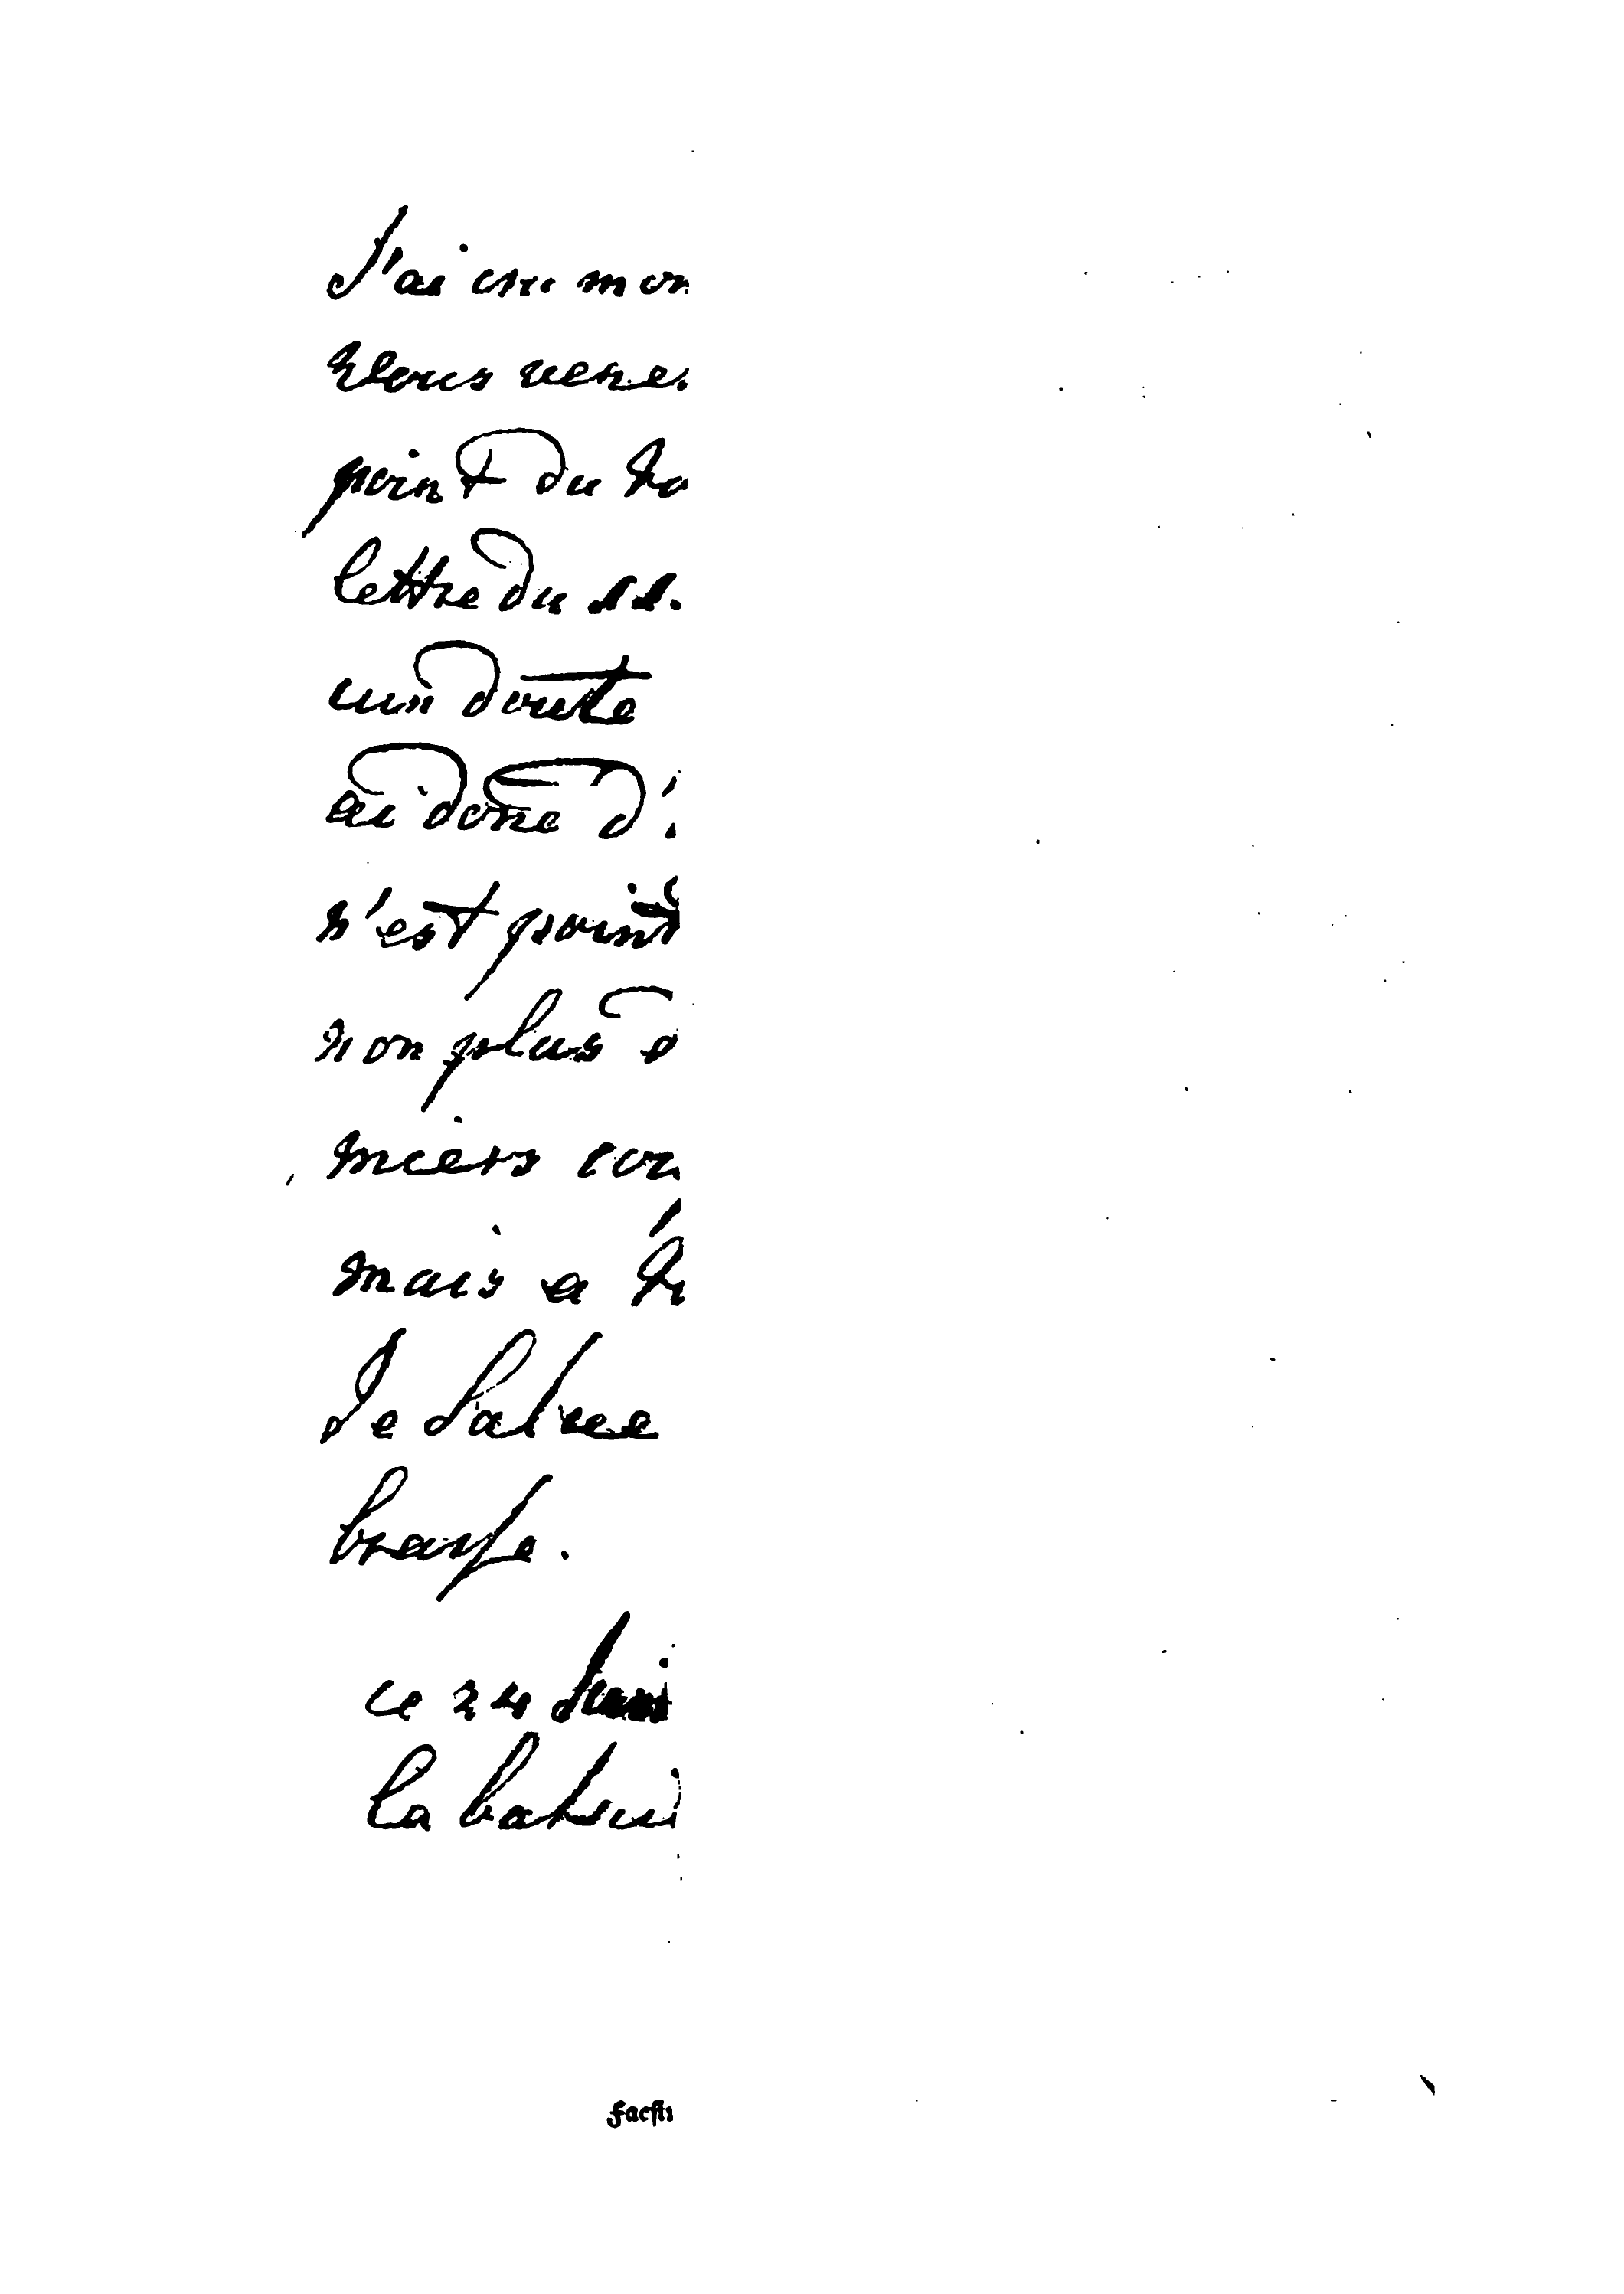 J'ai cru mon
vous vene
point du to
lettre du 11.
un doute
ai doné d'
n'est point
non plus d
miers con
mais a
Je Salue
brasse.
ce 24 Juin
la
facsi